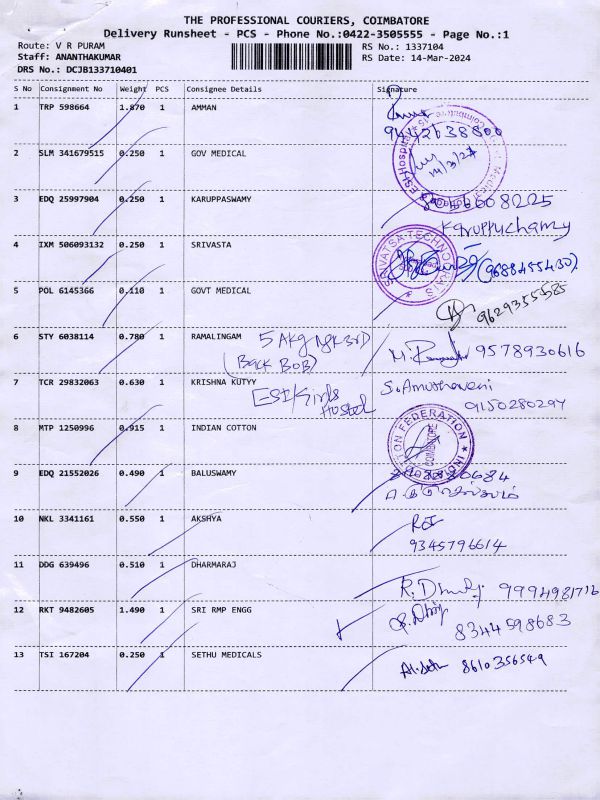 THE PROFESSIONAL COURIERS, COIMBATORE
Delivery Runsheet - PCS - Phone No.:0422-3505555 - Page No.:1
Route: V R PURAM
RS No.: 1337104
Staff: ANANTHAKUMAR
RS Date: 14-Mar-2024
DRS No.: DCJB133710401
S No Consignment No Weight PCS Consignee Details Signature
1 TRP 598664 1.870 1 AMMAN
9442638800
2 SLM 341679515 0.250 1 GOV MEDICAL
14/3/24
3 EDQ 25997904 0.250 1 KARUPPASWAMY
Karuppuchamy
4 IXM 506093132 0.250 1 SRIVASTA
SRIVATSA TECHNOCRATS
(9688455430)
5 POL 6145366 0.110 1 GOVT MEDICAL
9629355585
6 STY 6038114 0.780 1 RAMALINGAM
(Back BOB)
9578930616
7 TCR 29832063 0.630 1 KRISHNA KUTYY
ESI/Girls
Hostel
S.Amuthaveni
9150280297
8 MTP 1250996 0.915 1 INDIAN COTTON
COTTON FEDERATION
COIMBATORE
9 EDQ 21552026 0.490 1 BALUSWAMY
10 NKL 3341161 0.550 1 AKSHYA
9345796614
11 DDG 639496 0.510 1 DHARMARAJ
9994981716
12 RKT 9482605 1.490 1 SRI RMP ENGG
8344598683
13 TSI 167204 0.250 1 SETHU MEDICALS
8610356549